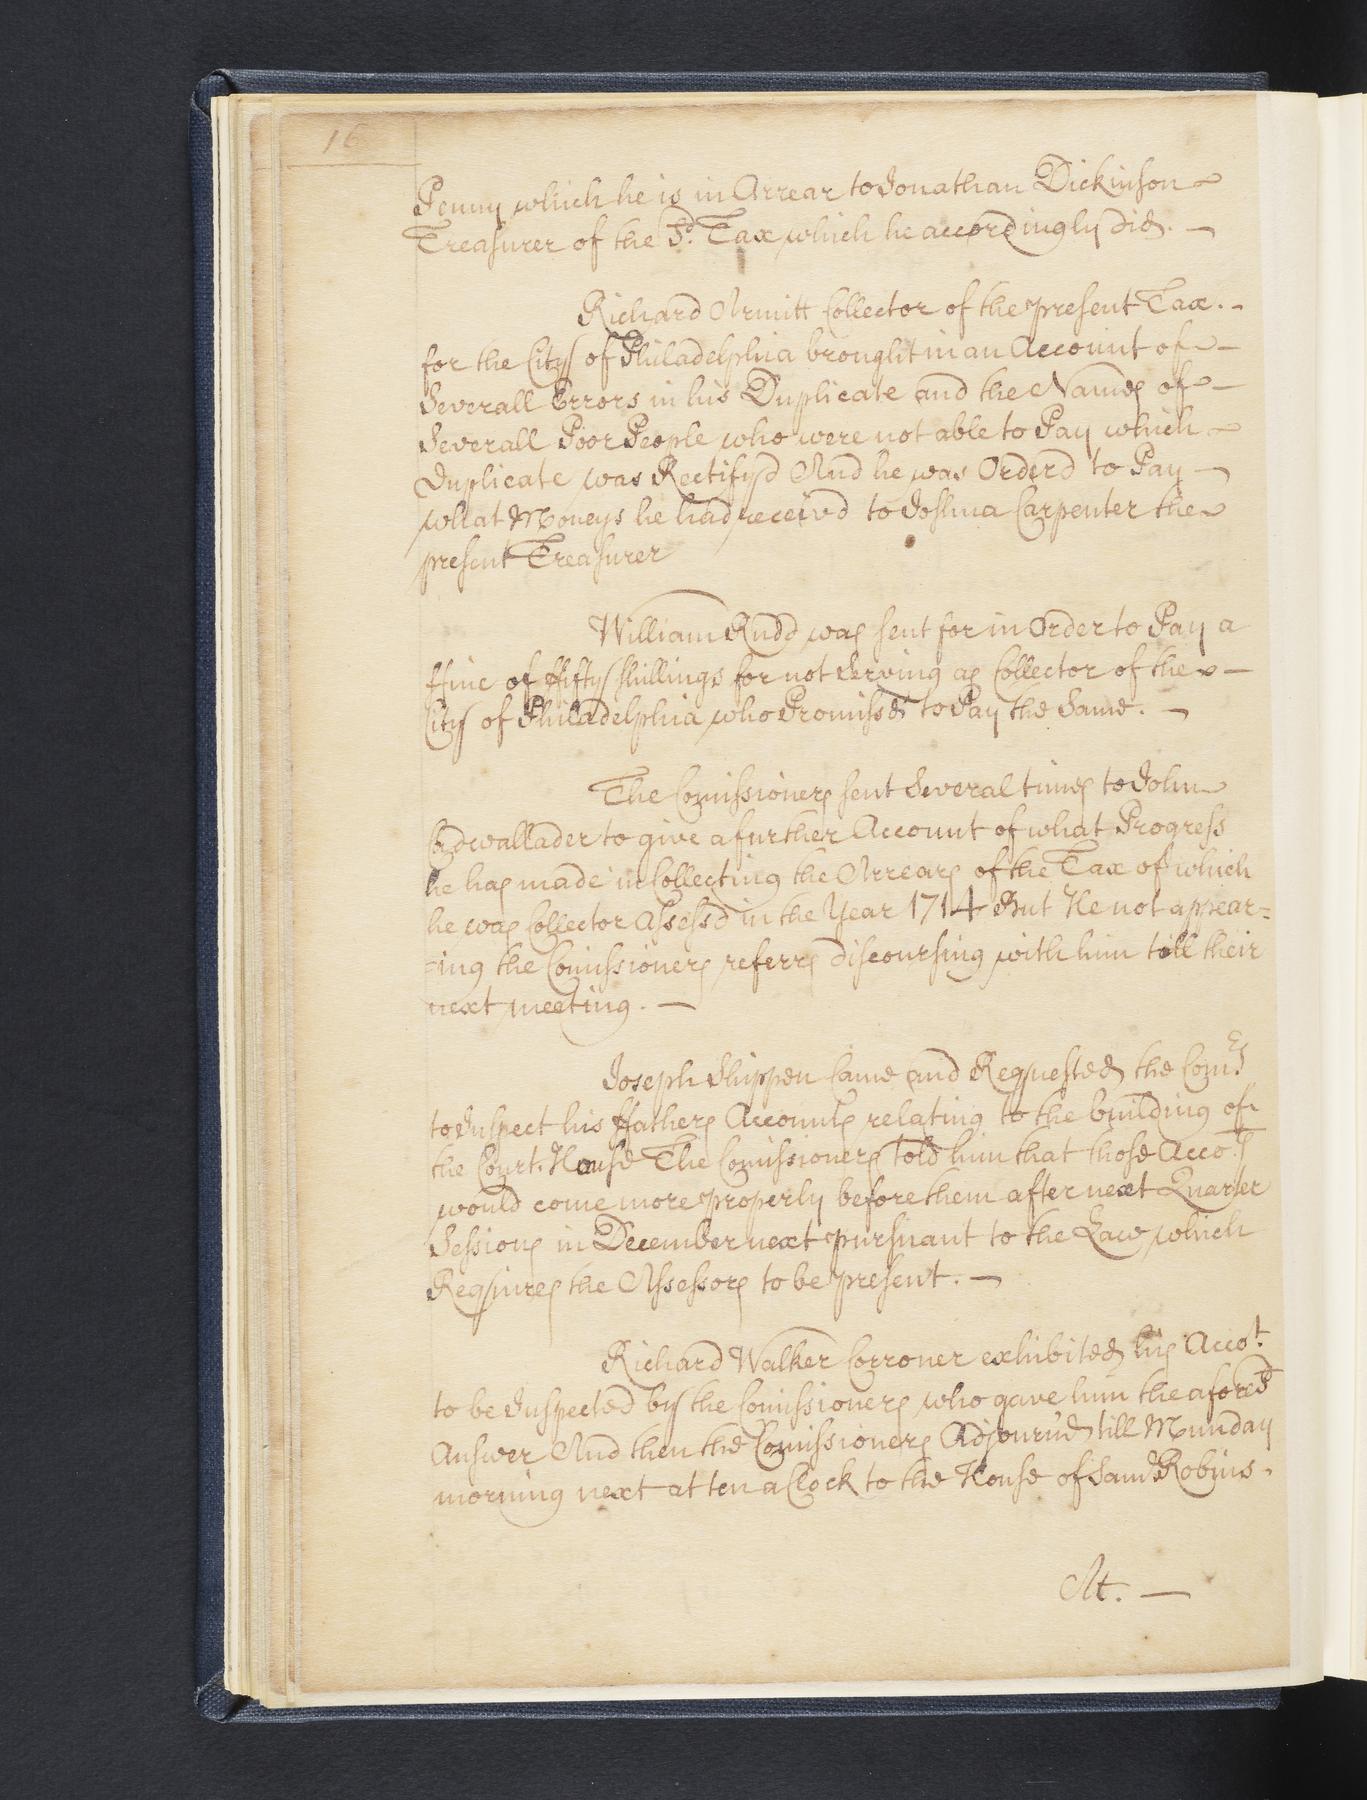 16
Penny which he is in Arrear to Jonathan Dickinson
Treasurer of the Sd. Tax which he accordingly did. —
Richard Armitt Collector of the present Tax. -
for the City of Philadelphia brought in an Account of —
Severall Errors in his Duplicate and the Names of —
Severall Poor People who were not able to Pay which
Duplicate was Rectify'd And he was Orderd to Pay —
what Moneys he had receivd to Joshua Carpenter the
present Treasurer
William Rudd was sent for in Order to Pay a
ffine of ffifty shillings for not Serving as Collector of the —
City of Philadelphia who Promissd to Pay the Same. —
The Comissioners sent Several times to John
Cadwallader to give a further Account of what Progress
he has made in Collecting the Arrears of the Tax of which
he was Collector Assessd in the Year 1714 But He not appear=
=ing the Comissioners referrs discoursing with him till their
next meeting. —
Joseph Shippen Came and Requested the Comrs
to Inspect his ffathers Accounts relating to the building of
the Court House The Comissioners told him that those Accots
would come more properly before them after next Quarter
Sessions in December next pursuant to the Law which
Requires the Assessors to be present. —
Richard Walker Corroner exhibited his Accot.
to be Inspected by the Comissioners who gave him the aforesd
Answer And then the Comissioners Adjourn'd till Munday
morning next at ten a Clock to the House of Saml Robins.
At. —